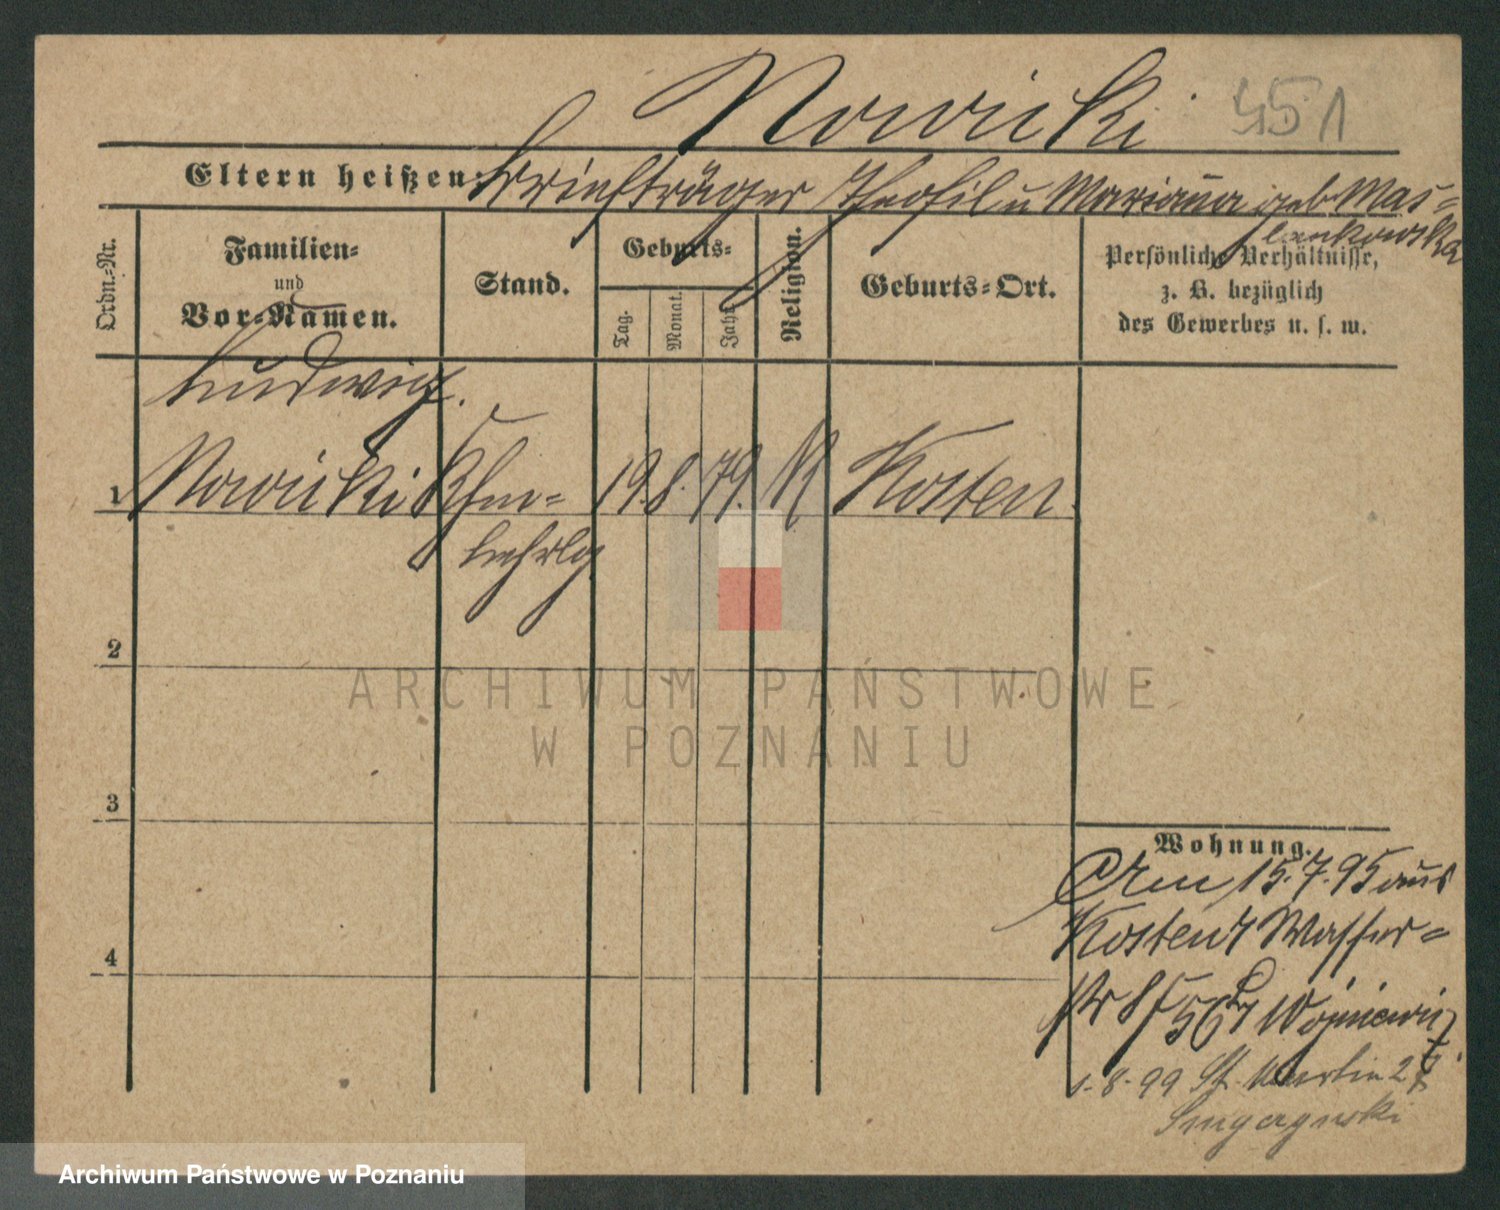 Nowicki 451
Eltern heißen: Briefträger Theofil u Mariana geb. Mas=
lankowska
Ordn.-Nr.
Familien=
und
Vor=Namen.
Stand.
Geburts=
Tag.
Monat.
Jahr.
Religion.
Geburts=Ort.
Persönliche Verhältnisse,
z. B. bezüglich
des Gewerbes u. s. w.
Ludwig.
1 Nowicki Kfm= 19. 8. 79. K Kosten.
Lehrlg
2
3
4
Wohnung.
Am 15.7.95 aus
Kosten Wasser=
str 8
1.8.99 St. Martin 27
ARCHIWUM PAŃSTWOWE
W POZNANIU
Archiwum Państwowe w Poznaniu